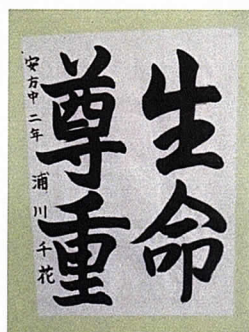 生命
尊重
安方中 二年 浦川千花